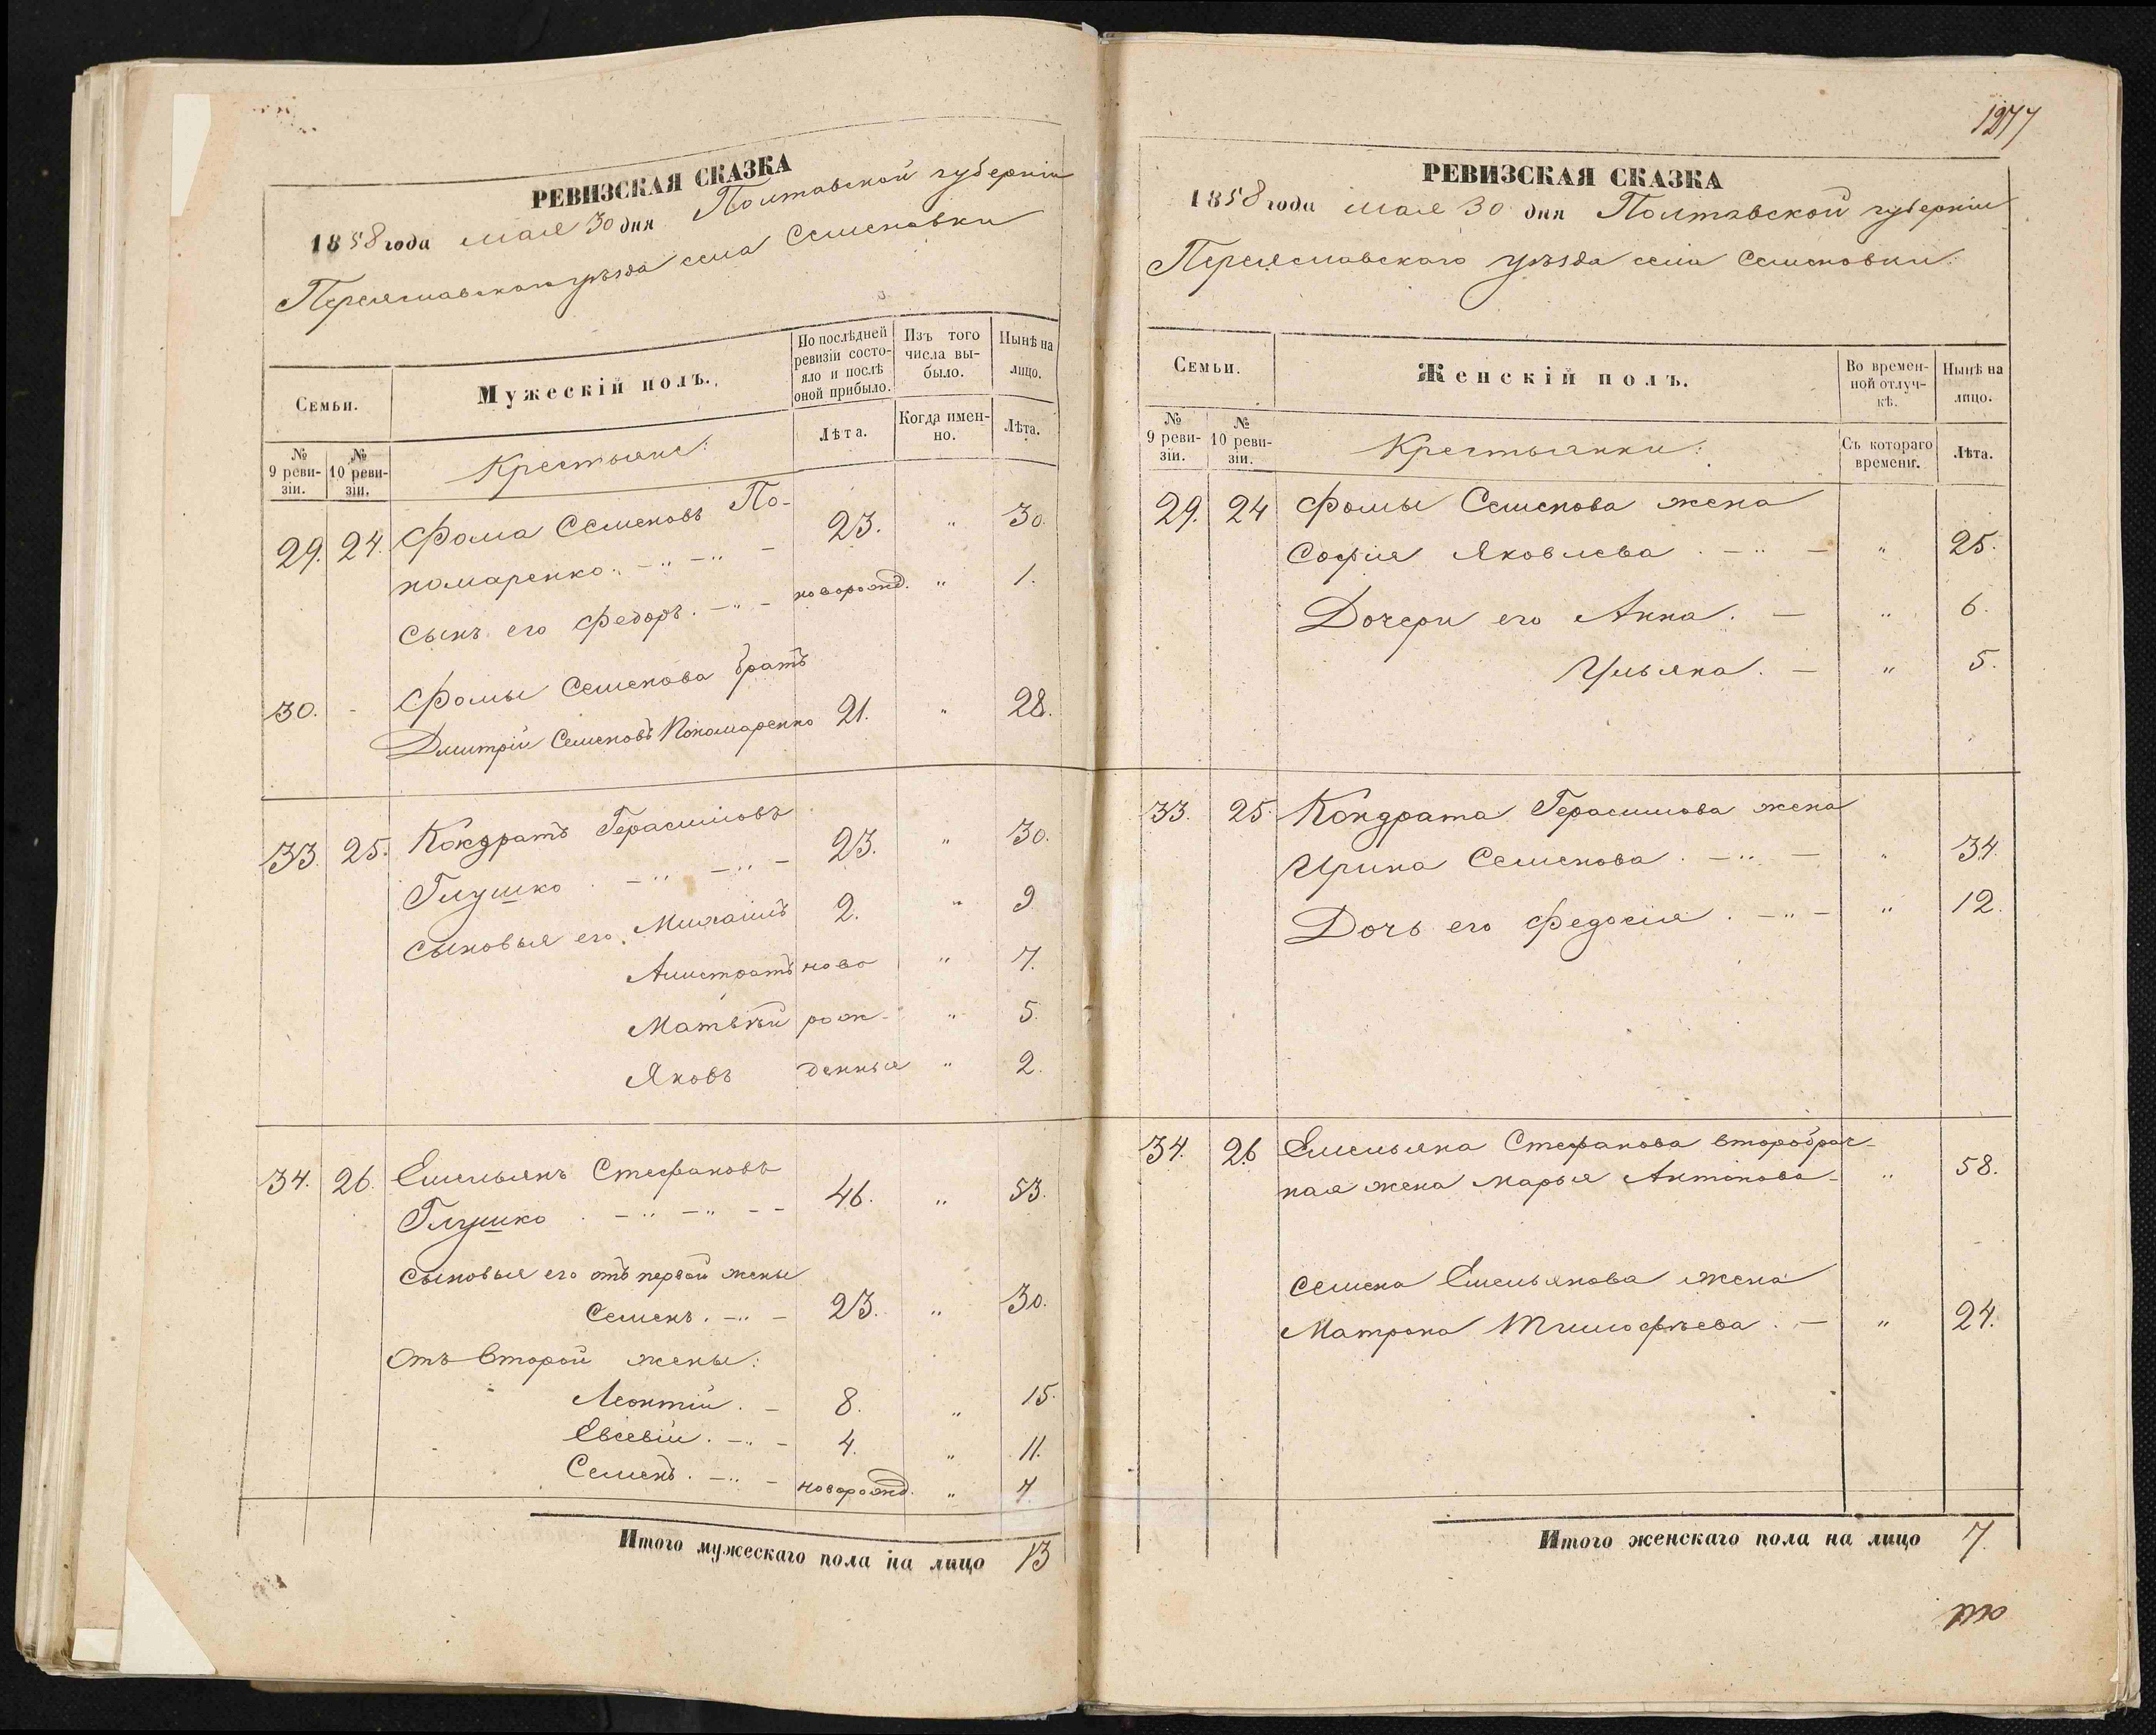 РЕВИЗСКАЯ СКАЗКА
1858 года мая 30 дня Полтавской губерніи
Переяславскаго уѣзда села Семеновки
Семьи.
Мужескій полъ.
По послѣдней ревизіи состояло и послѣ оной прибыло.
Изъ того числа выбыло.
Нынѣ на лицо.
№ 9 ревизіи.
№ 10 ревизіи.
Крестьяне:
Лѣта.
Когда именно.
Лѣта.
29. 24. Фома Семеновъ По-
номаренко. -"- -"- - 23. " 30.
Сынъ его Федоръ. -"- новорожд. " 1.
30. - Фомы Семенова братъ
Дмитрій Семеновъ Пономаренко 21. " 28.
33. 25. Кондратъ Герасимовъ
Глушко . -"- -"- 23. " 30.
Сыновья его Михаилъ 2. " 9
Амистратъ ново " 7.
Матвѣй рож- " 5.
Яковъ денные " 2.
34. 26. Емельянъ Стефановъ
Глушко . -"- -"- - 46. " 53.
Сыновья его отъ первой жены
Семенъ. -"- 23. " 30.
Отъ второй жены:
Леонтій. - 8. " 15.
Евсевій. -"- 4. " 11.
Семенъ. -"- новорожд. " 7.
Итого мужескаго пола на лицо 13
1277
РЕВИЗСКАЯ СКАЗКА
1858 года мая 30 дня Полтавской губерніи
Переяславскаго уѣзда села Семеновки.
Семьи.
Женскій полъ.
Во временной отлучкѣ.
Нынѣ на лицо.
№ 9 ревизіи.
№ 10 ревизіи.
Крестьянки:
Съ котораго времени.
Лѣта.
29. 24 Фомы Семенова жена
Софія Яковлева . -"- " 25.
Дочери его Анна. - " 6.
Ульяна. - " 5.
33. 25. Кондрата Герасимова жена
Ирина Семенова . -"- " 34.
Дочь его Федосія . -"- " 12.
34. 26 Емельяна Стефанова второбрач-
ная жена Марья Антонова - " 58.
Семена Емельянова жена
Матрона Тимофѣева . - " 24.
Итого женскаго пола на лицо 7.